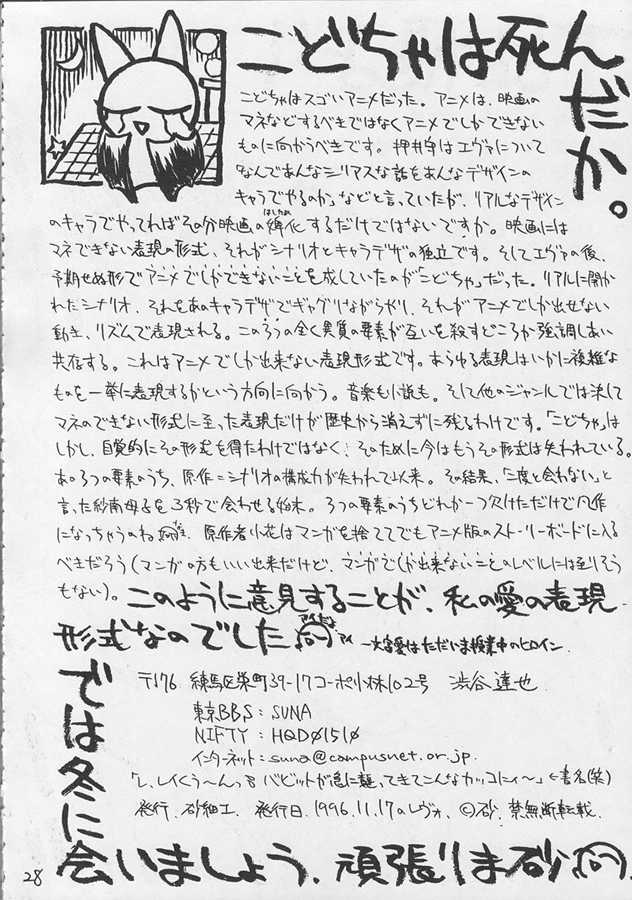 こどちゃは死んだか。
こどちゃはスゴいアニメだった。アニメは、映画の
マネなどするべきではなくアニメでしかできない
ものに向かうべきです。押井守はエヴァについて
「なんであんなシリアスな話をあんなデザインの
キャラでやるのか」などと言っていたが、リアルなデザイン
のキャラでやってればその分映画の
化するだけではないですか。映画には
マネできない表現の形式、それがシナリオとキャラデザの独立です。そしてエヴァの後、
予期せぬ形でアニメでしかできないことを成していたのが「こどちゃ」だった。リアルに開か
れたシナリオ、それをあのキャラデザでギャグりながら
、それがアニメでしか出せない
動き、リズムで表現される。この3つの全く異質の要素が互いを殺すどころか強調しあい
共存する。これはアニメでしか出来ない表現形式です。あらゆる表現はいかに複雑な
ものを一挙に表現するかという方向に向かう。音楽も小説も。そして他のジャンルでは決して
マネのできない形式に至った表現だけが歴史から消えずに残るわけです。「こどちゃ」は
しかし、自覚的にその形式を得たわけではなく、そのために今はもうその形式は失われている。
あの3つの要素のうち、原作=シナリオの構成力が失われて以来。その結果、「二度と会わない」と
言った紗南母子を3秒で会わせる始末。3つの要素のうちどれか一つ欠けただけで凡作
になっちゃうのね
原作者小花はマンガを捨ててでもアニメ版のストーリーボードに入る
べきだろう(マンガの方もいい出来だけど、マンガでしか出来ないことのレベルには至りそう
もない)。このように意見することが、私の愛の表現
形式なのでした
―大宮愛はただいま授業中のヒロイン
〒176 練馬区栄町39-17コーポ小林102号 渋谷達也
東京BBS:SUNA
NIFTY:HQD01510
インターネット:suna@campusnet.or.jp.
「レ、レイくぅ〜んっ
バビットが急に襲ってきてこんなカッコにィ〜」←書名(笑)
発行.砂細工.発行日.1996.11.17のレヴォ、©砂.禁無断転載.
では冬に
会いましょう.頑張りま砂
28